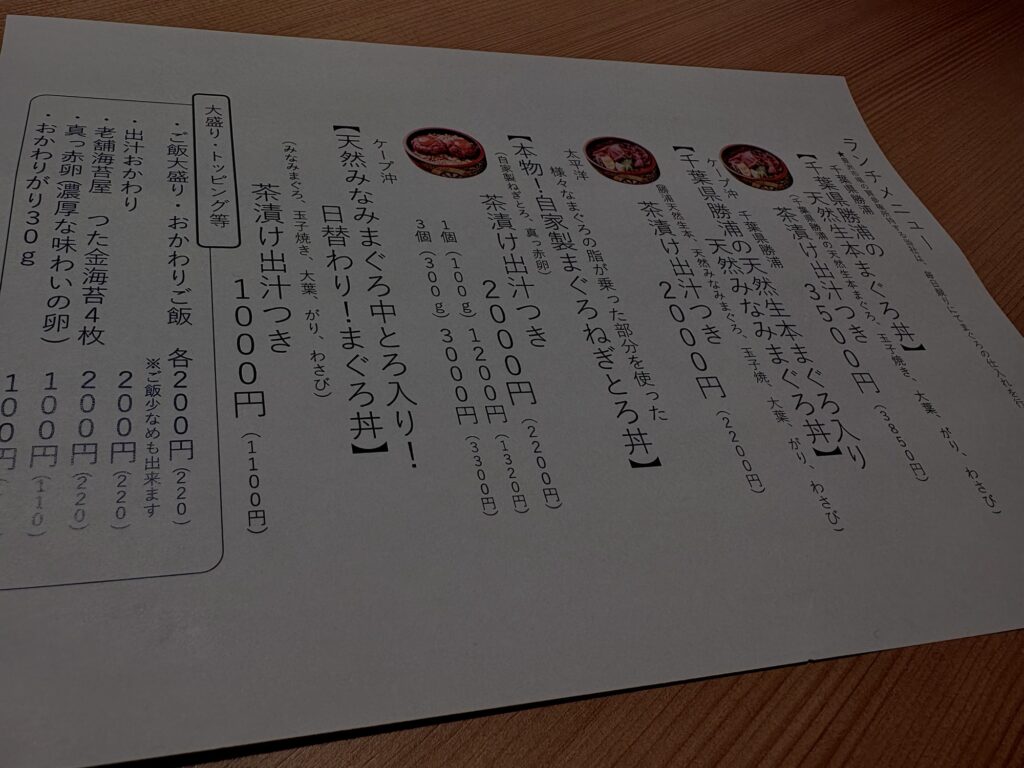 ランチメニュー
千葉県勝浦
【千葉県勝浦の
天然生本まぐろ丼】
(千葉県勝浦の天然生本まぐろ、玉子焼き、大葉、がり、わさび)
茶漬け出汁つき
3500円(3850円)
ケープ沖 千葉県勝浦
【千葉県勝浦の天然生本まぐろ入り
天然みなみまぐろ丼】
勝浦天然生本、天然みなみまぐろ、玉子焼、大葉、がり、わさび)
茶漬け出汁つき
2000円(2200円)
太平洋
様々なまぐろの脂が乗った部分を使った
【本物!自家製まぐろねぎとろ丼】
(自家製ねぎとろ、真っ赤卵)
茶漬け出汁つき
2000円(2200円)
1個(100g)1200円(1320円)
3個(300g)3000円(3300円)
ケープ沖
【天然みなみまぐろ中とろ入り!
日替わり!まぐろ丼】
(みなみまぐろ、玉子焼き、大葉、がり、わさび)
茶漬け出汁つき
1000円(1100円)
大盛り・トッピング等
・ご飯大盛り・おかわりご飯 各200円(220)
※ご飯少なめも出来ます
・出汁おかわり 200円(220)
・老舗海苔屋 つた金海苔4枚 200円(220)
・真っ赤卵(濃厚な味わいの卵) 100円(110)
・おかわりがり30g 100円